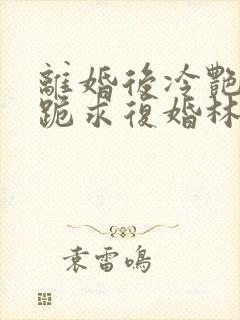 離婚後冷艷
跪求復婚林
袁雷鳴